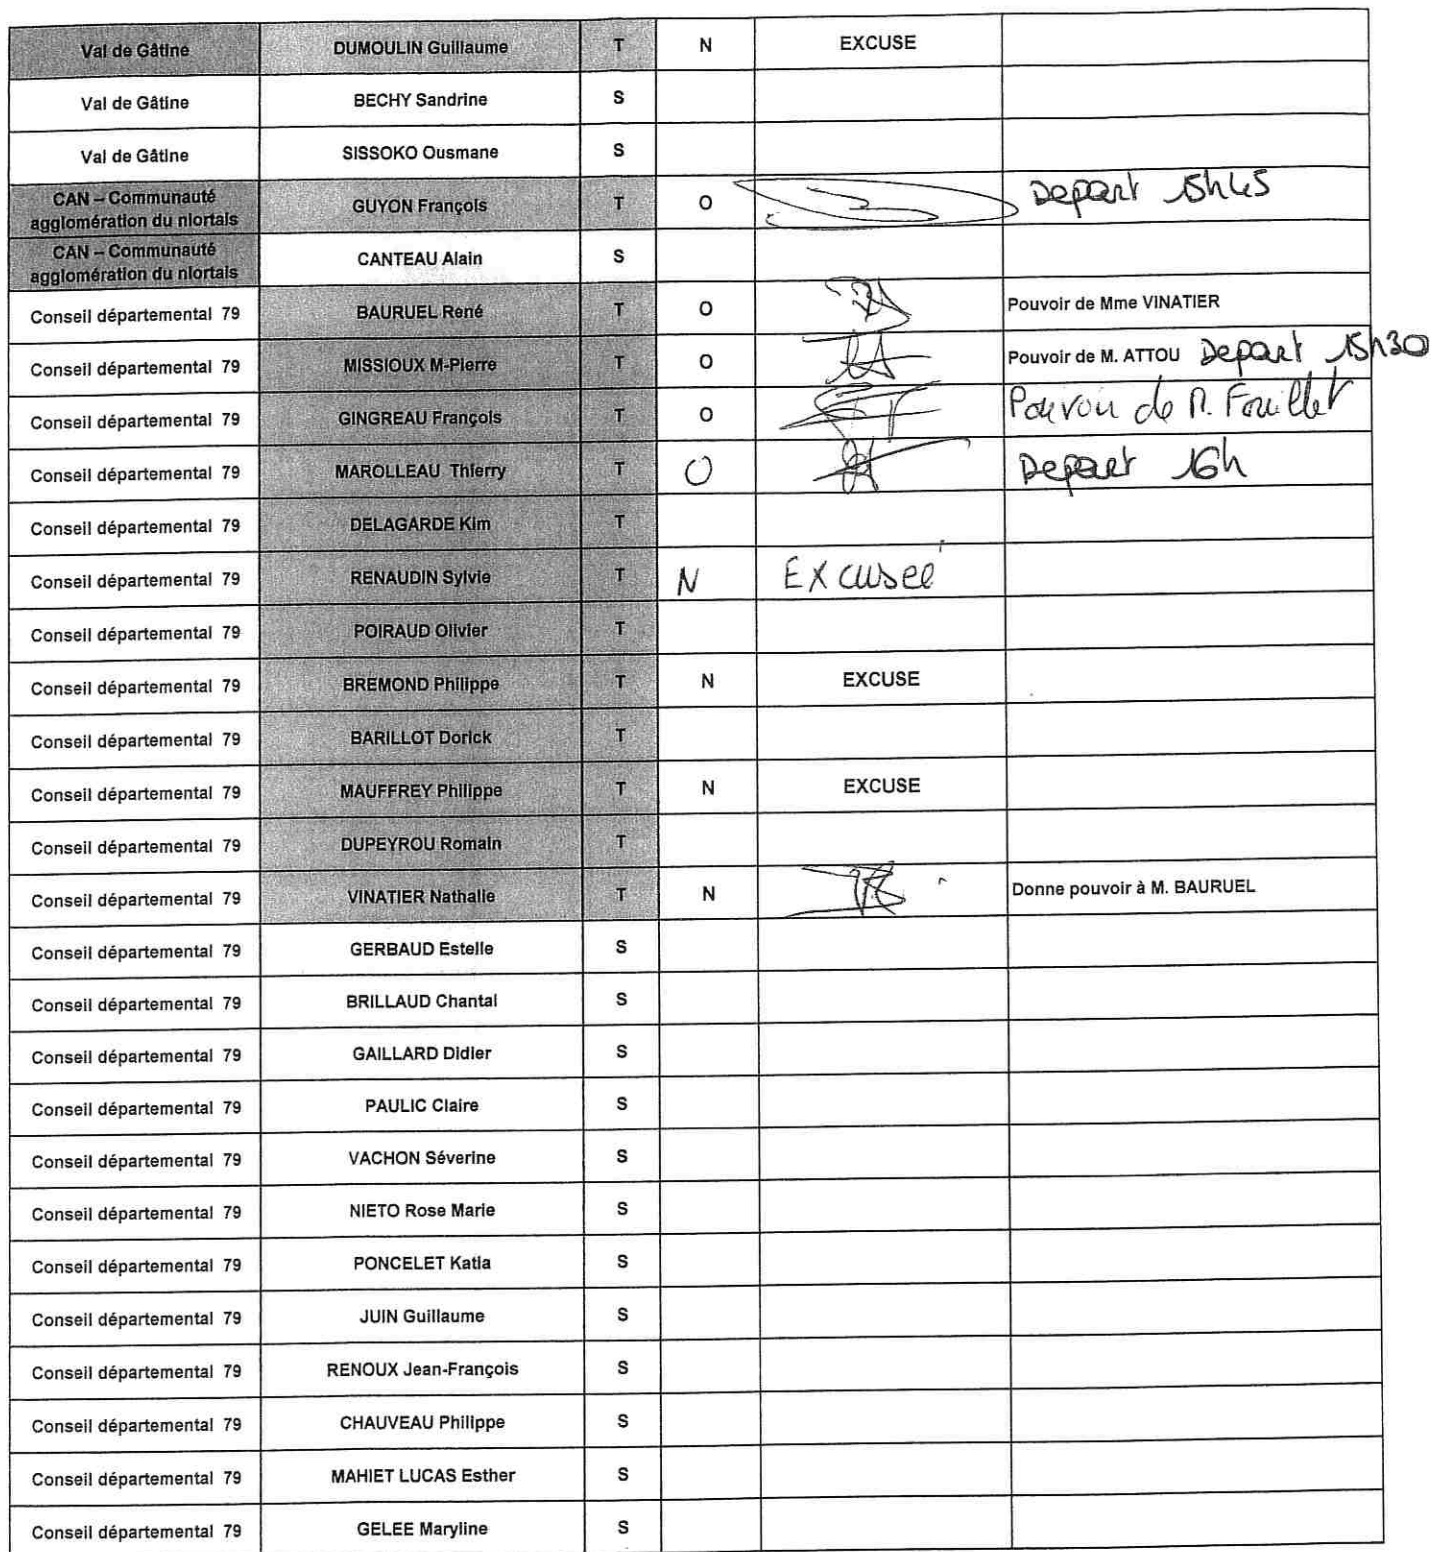 Val de Gâtine DUMOULIN Guillaume T N EXCUSE
Val de Gâtine BECHY Sandrine S
Val de Gâtine SISSOKO Ousmane S
CAN – Communauté
agglomération du niortais GUYON François T O Depart 15h45
CAN – Communauté
agglomération du niortais CANTEAU Alain S
Conseil départemental 79 BAURUEL René T O Pouvoir de Mme VINATIER
Conseil départemental 79 MISSIOUX M-Pierre T O Pouvoir de M. ATTOU Depart 15h30
Conseil départemental 79 GINGREAU François T O Pouvoir de M. Fouillet
Conseil départemental 79 MAROLLEAU Thierry T O Depart 16h
Conseil départemental 79 DELAGARDE Kim T
Conseil départemental 79 RENAUDIN Sylvie T N Excusée
Conseil départemental 79 POIRAUD Olivier T
Conseil départemental 79 BREMOND Philippe T N EXCUSE
Conseil départemental 79 BARILLOT Dorick T
Conseil départemental 79 MAUFFREY Philippe T N EXCUSE
Conseil départemental 79 DUPEYROU Romain T
Conseil départemental 79 VINATIER Nathalie T N Donne pouvoir à M. BAURUEL
Conseil départemental 79 GERBAUD Estelle S
Conseil départemental 79 BRILLAUD Chantal S
Conseil départemental 79 GAILLARD Didier S
Conseil départemental 79 PAULIC Claire S
Conseil départemental 79 VACHON Séverine S
Conseil départemental 79 NIETO Rose Marie S
Conseil départemental 79 PONCELET Katia S
Conseil départemental 79 JUIN Guillaume S
Conseil départemental 79 RENOUX Jean-François S
Conseil départemental 79 CHAUVEAU Philippe S
Conseil départemental 79 MAHIET LUCAS Esther S
Conseil départemental 79 GELEE Maryline S